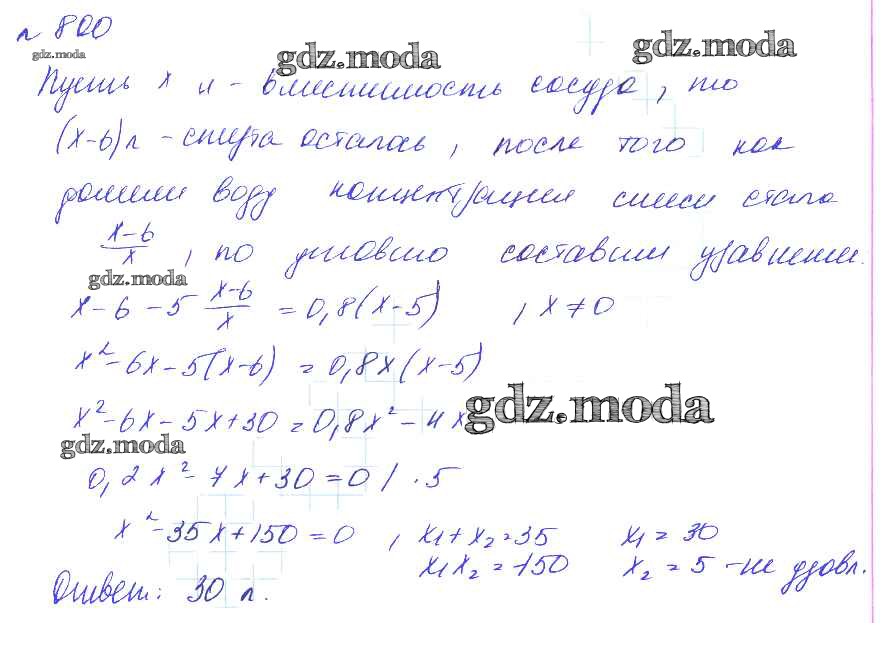 № 800
gdz.moda gdz.moda gdz.moda
Пусть x л - вместимость сосуда, то
(x-6) л - спирта осталась, после того как
долили воду концентрация смеси стала
\frac{x-6}{x}, по условию составим уравнение.
gdz.moda
x-6-5\frac{x-6}{x} = 0,8(x-5) , x≠0
x²-6x-5(x-6) = 0,8x(x-5)
x²-6x-5x+30=0,8x²-4x
gdz.moda
gdz.moda
0,2x²-7x+30=0 / ·5
x²-35x+150=0 , x₁+x₂=35 x₁=30
x₁x₂=150 x₂=5 -не удовл.
Ответ: 30 л.